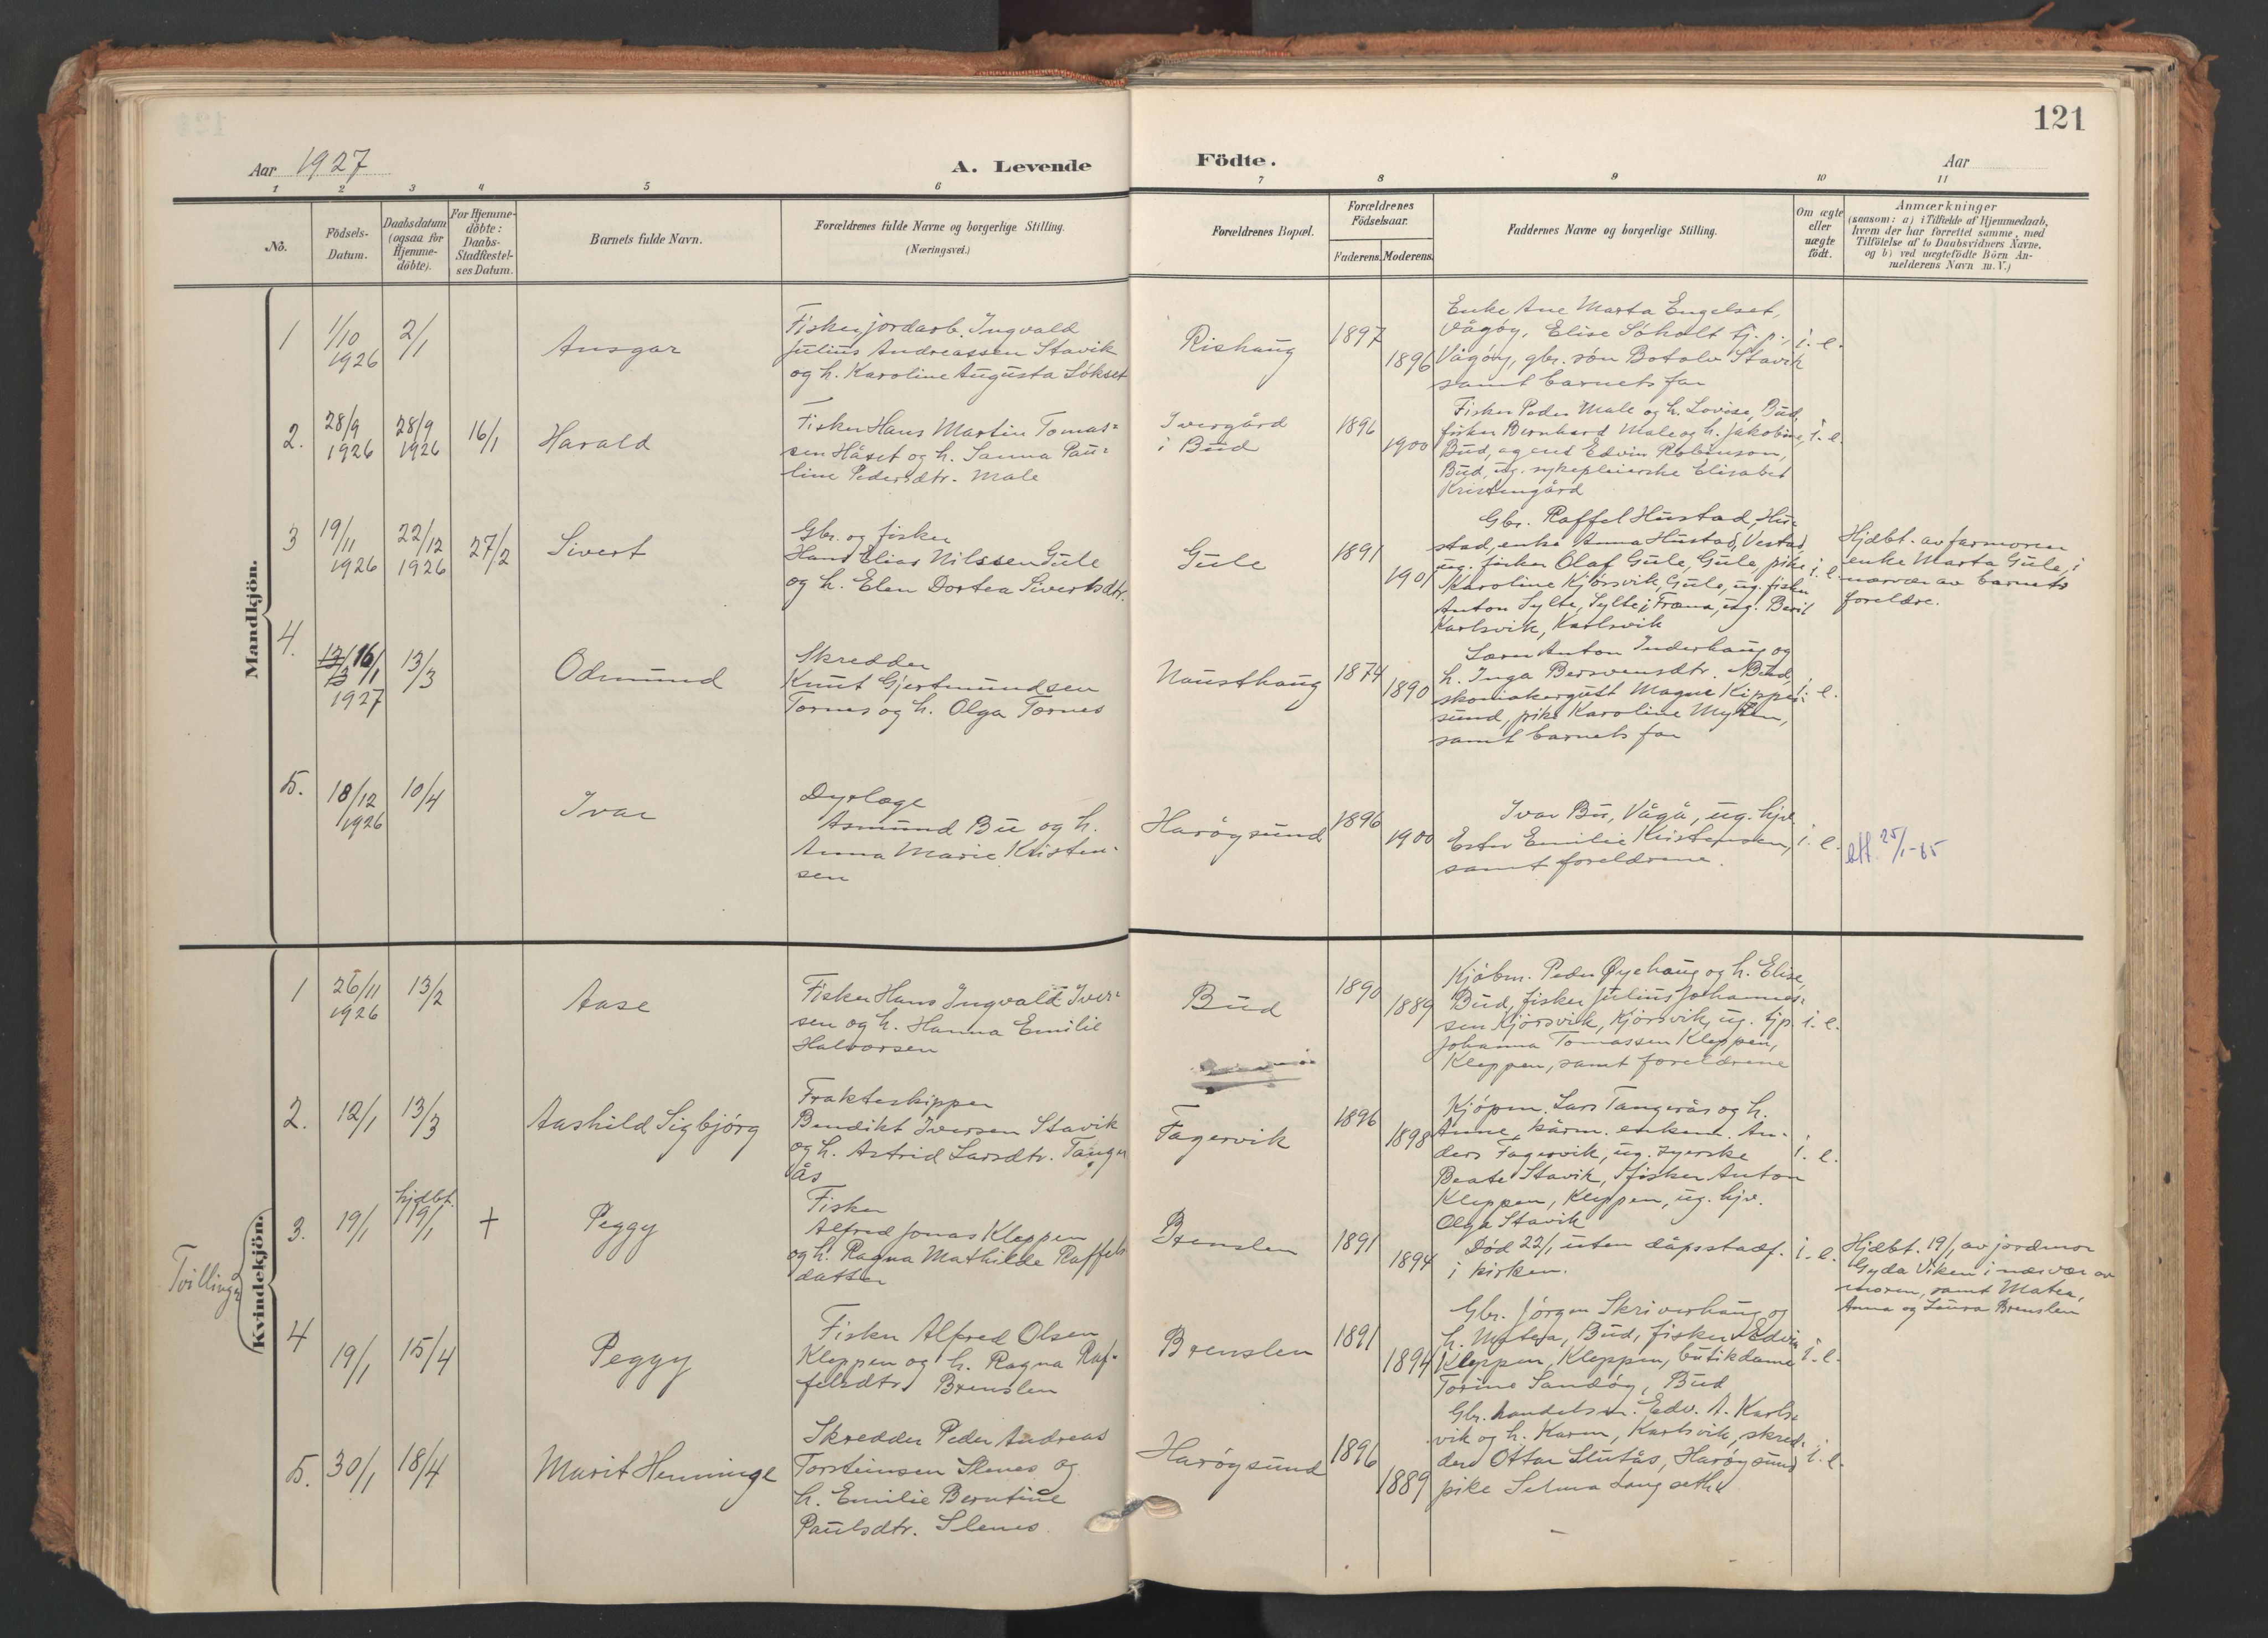 121
Aar 1927
A. Levende Födte.
Aar
1 2 3 4 5 6 7 8 9 10 11
No.
Födsels-
Datum.
Daabsdatum
(ogsaa for
Hjemme-
döbte).
For Hjemme-
döbte:
Daabs-
Stadfæstel-
ses Datum.
Barnets fulde Navn.
Forældrenes fulde Navne og borgerlige Stilling.
(Næringsvei.)
Forældrenes Bopæl.
Forældrenes
Födselsaar.
Faderens. Moderens.
Faddernes Navne og borgerlige Stilling.
Om ægte
eller
uægte
födt.
Anmærkninger
(saasom: a) i Tilfælde af Hjemmedaab,
hvem der har forrettet samme, med
Tilföielse af to Daabsvidners Navne,
og b) ved uægtefödte Börn An-
melderens Navn m. V.)
Mandkjön.
1
1/10
1926
2/1
Ansgar
Fisker, jordarb. Ingvald
Julius Andreassen Stavik
og h. Karoline Augusta Sökset
Rishaug
1897
1896
Enke Ane Marta Engelset,
Vågöy, Elise Söholt tj. p.,
Vågöy, gbr. sön Botolv Stavik
samt barnets far
i. e.
2.
28/9
1926
28/9
1926
16/1
Harald
Fisker Hans Martin Tomas-
sen Håset og h. Sanna Pau-
line Pedersdtr. Male
Ivergård
i Bud
1896
1900
Fisker Peder Male og h. Lovise, Bud,
fisker Bernhard Male og h. Jakobine,
Bud, agent Edvin Robinson,
Bud, ug. sykepleierske Elisabet
Kristengård
i. e.
3
19/11
1926
22/12
1926
27/2
Sivert
Gbr. og fisker
Hans Elias Nilssen Gule
og h. Elen Dortea Sivertsdtr.
Gule
1891
1901
Gbr. Raffel Hustad, Hu-
stad, enke Anna Hustad, Vestad,
ug. fisker Olaf Gule, Gule, pike
Karoline Kjörsvik, Gule, ug. fisker
Anton Sylte, Sylte i Fræna, ug. Berit
Karlsvik, Karlsvik
i. e.
Hjdbt. av farmoren
enke Marta Gule, i
nærvær av barnets
forældre.
4.
16/1
1927
13/3
Odmund
Skredder
Knut Gjertmundsen
Tornes og h. Olga Tornes
Nausthaug
1874
1890
Lærer Anton Inderhaug og
h. Inga Bersvensdtr. Bud,
skomakergutt Magne Kipper-
sund, pike Karoline Myhren,
samt barnets far
i. e.
5.
18/12
1926
10/4
Ivar
Dyrlæge
Asmund Bu og h.
Anna Marie Kristen-
sen
Haröysund
1896
1900
Ivar Bu, Vågå, ug. hjv.
Ester Emilie Kristensen,
samt forældrene.
i. e.
att. 25/1-65
Kvindekjön.
1
26/11
1926
13/2
Aase
Fisker Hans Ingvald Iver-
sen og h. Hanna Emilie
Halvorsen
Bud
1890
1889
Kjöbm. Peder Øyehaug og h. Elise,
Bud, fisker Julius Johannes-
sen Kjörsvik, Kjörsvik, ug. tjp.
Johanna Tomassen Kleppen,
Kleppen, samt forældrene
i. e.
2.
12/1
13/3
Aashild Sigbjörg
Frakteskipper
Bendikt Iversen Stavik
og h. Astrid Larsdtr. Tanger-
ås
Fagervik
1896
1898
Kjöpm. Lars Tangerås og h.
Anne, kårm. enkem. An-
ders Fagervik, ug. syerske
Beate Stavik, fisker Anton
Kleppen, Kleppen, ug. hjv.
Olga Stavik
i. e.
Tvillinger
3.
19/1
hjdbt.
19/1
+
Peggy
Fisker
Alfred Jonas Kleppen
og h. Ragna Mathilde Raffels-
datter
Brenslen
1891
1894
Död 22/1 uten dåpsstadf.
i kirken.
i. e.
Hjdbt. 19/1 av jordmor
Gyda Viken i nærvær av
moren, samt Matea,
Anna og Laura Brenslen
4
19/1
15/4
Peggy
Fisker Alfred Olsen
Kleppen og h. Ragna Raf-
felsdtr. Brenslen
Brenslen
1891
1894
Gbr. Jörgen Skriverhaug og
h. Matea, Bud, fisker Edvin
Kleppen, Kleppen, butikdame
Torine Sandöy, Bud
i. e.
5.
30/1
18/4
Marit Henninge
Skredder Peder Andreas
Torsteinsen Slenes og
h. Emilie Berntine
Paulsdtr. Slenes.
Haröysund
1896
1889
Gbr. handelsm. Edv. A. Karls-
vik og h. Karen, Karlsvik, skred-
der Ottar Slutås, Haröysund
pike Selma Langseth
i. e.